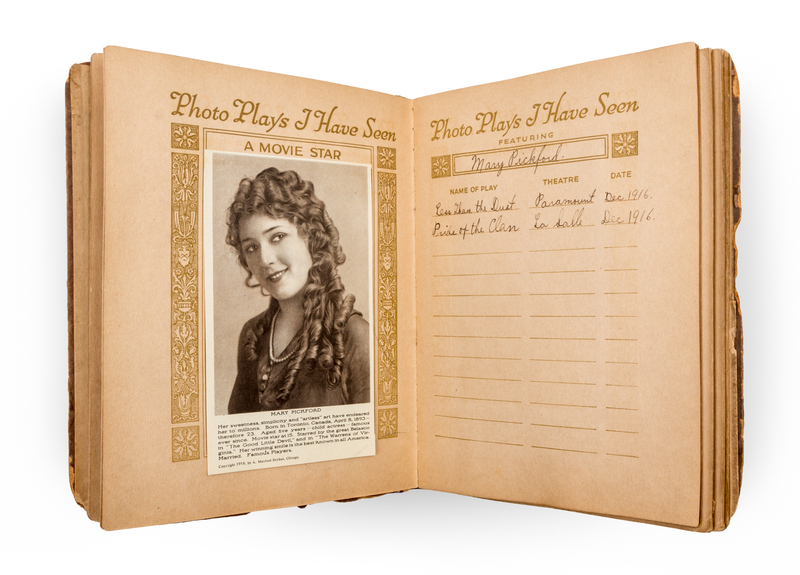 Photo Plays I Have Seen
A MOVIE STAR
MARY PICKFORD
Her sweetness, simplicity and "artless" art have endeared
her to millions. Born in Toronto, Canada, April 8, 1893 -
therefore 23. Aged five years - child actress - famous
ever since. Movie star at 15. Starred by the great Belasco
in "The Good Little Devil," and in "The Warrens of Vir-
ginia." Her winning smile is the best known in all America.
Married. Famous Players.
Copyright 1916, by
Photo Plays I Have Seen
FEATURING
Mary Pickford.
NAME OF PLAY THEATRE DATE
Less Than the Dust Paramount Dec 1916.
Pride of the Clan La Salle Dec 1916.